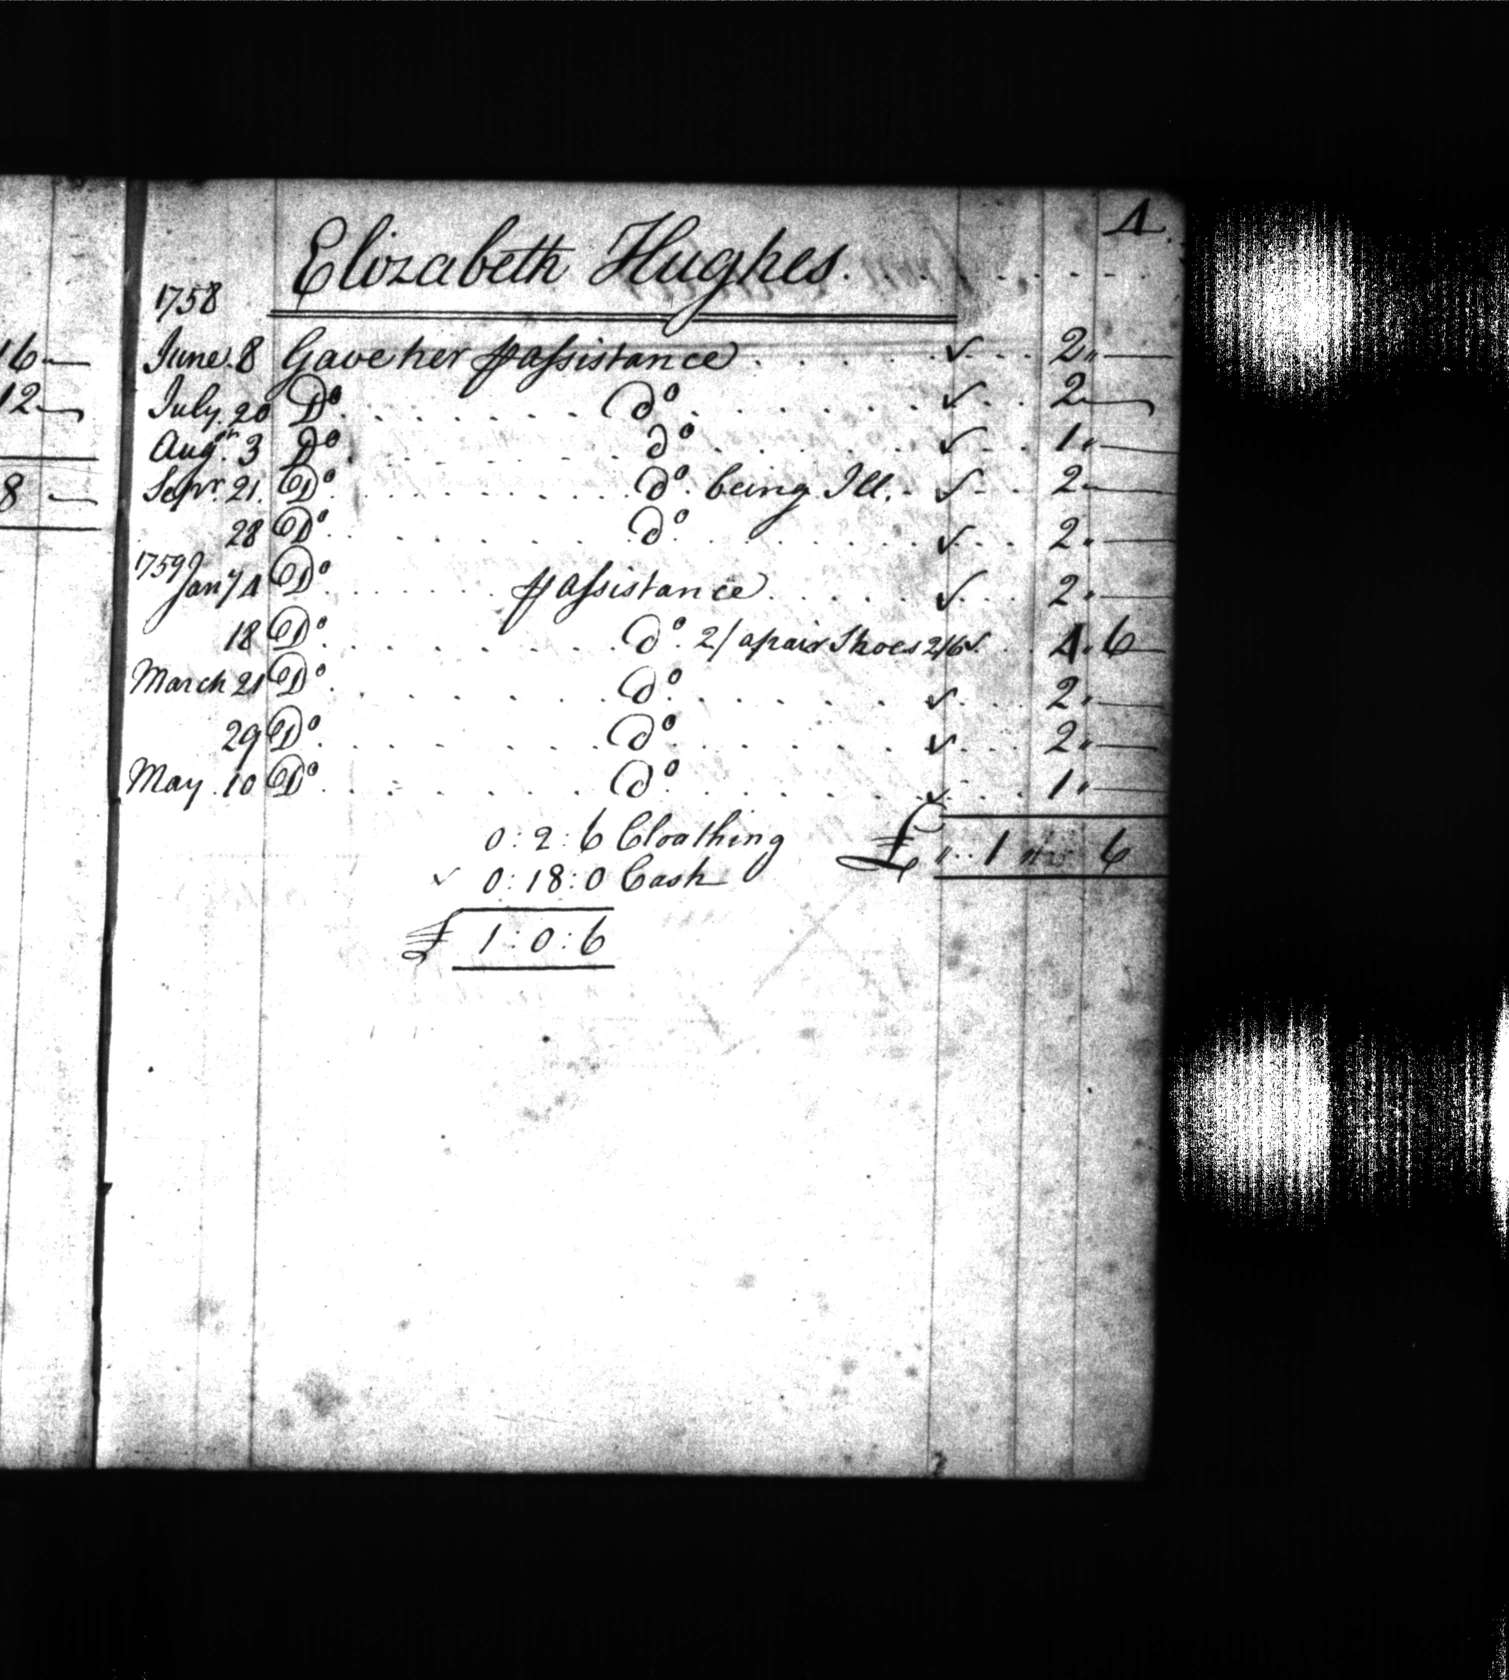 4
Elizabeth Hughes.
1758
16
June. 8 Gave her p assistance . . . . . ✓ . . . 2 " —
12
July. 20 Do. . . . . . . . do. . . . . . . ✓ . . 2 —
Augst. 3 Do. . . . . . . . do. . . . . . . ✓ . . 1 " —
8
Sepr. 21. Do. . . . . . . . do. being Ill. . ✓ . . 2 —
28 Do. . . . . . . . do. . . . . . . ✓ . . 2 " —
1759
Jany 4 Do. . . . . . p assistance . . . . . ✓ . . 2 " —
18 Do. . . . . . . . do. 2/ a pair Shoes 2/6 ✓ . . 4 " 6
March 21 Do. . . . . . . . do. . . . . . . ✓ . . 2 " —
29 Do. . . . . . . . do. . . . . . . ✓ . . 2 " —
May. 10 Do. . . . . . . . do. . . . . . . ✓ . . 1 " —
0 : 2 : 6 Cloathing £ " . . 1 " 6
✓ 0 : 18 : 0 Cash
£ 1 : 0 : 6